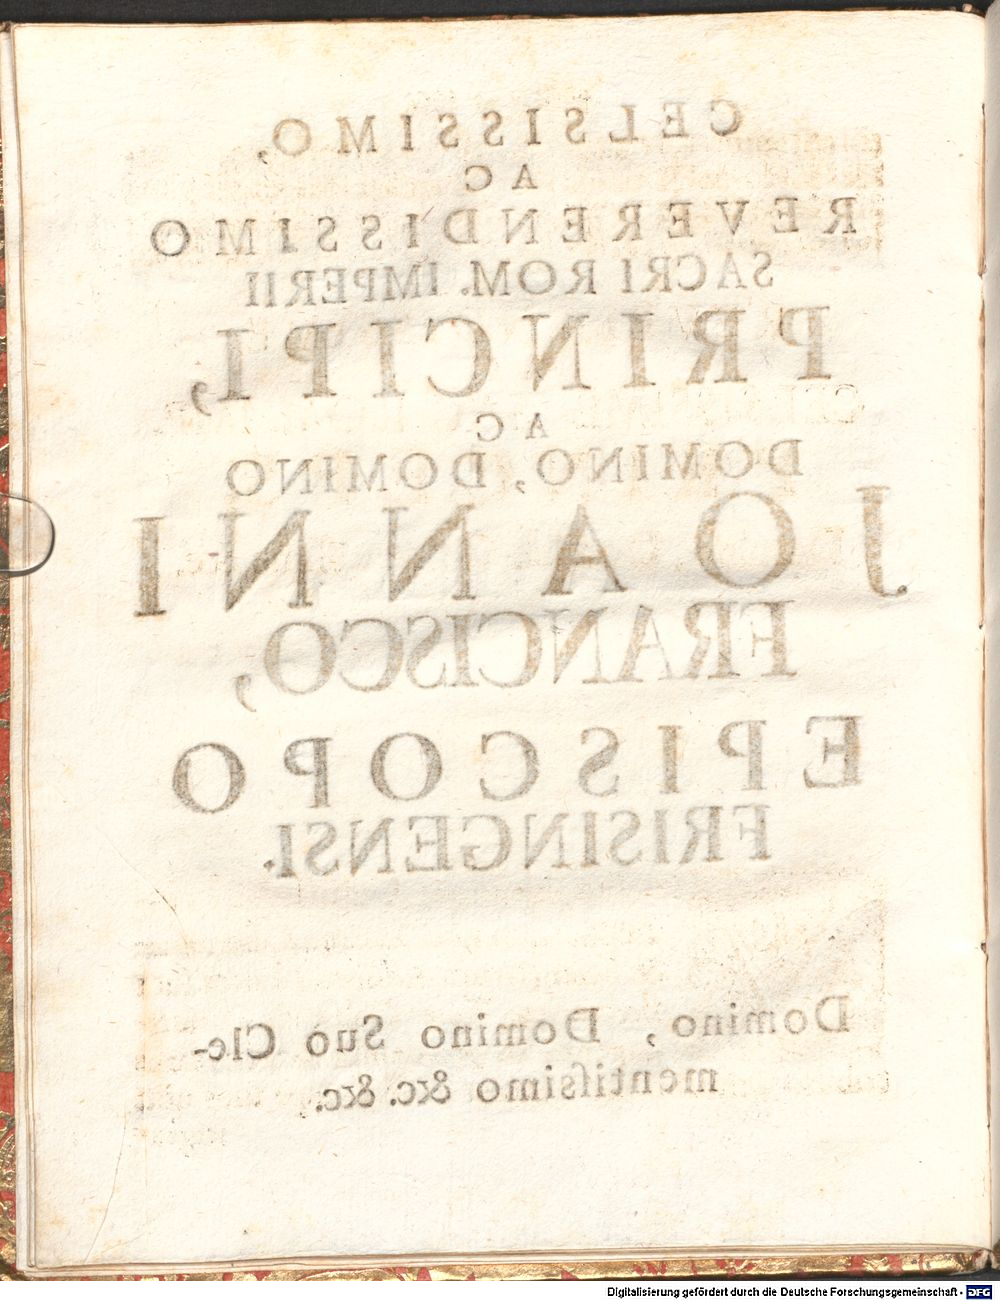 CELSISSIMO,
AC
REVERENDISSIMO
SACRI ROM. IMPERII
PRINCIPI,
AC
DOMINO, DOMINO
JOANNI
FRANCISCO,
EPISCOPO
FRISINGENSI.
Domino, Domino Suo Cle-
mentiſsimo &c. &c.
Digitalisierung gefördert durch die Deutsche Forschungsgemeinschaft - DFG